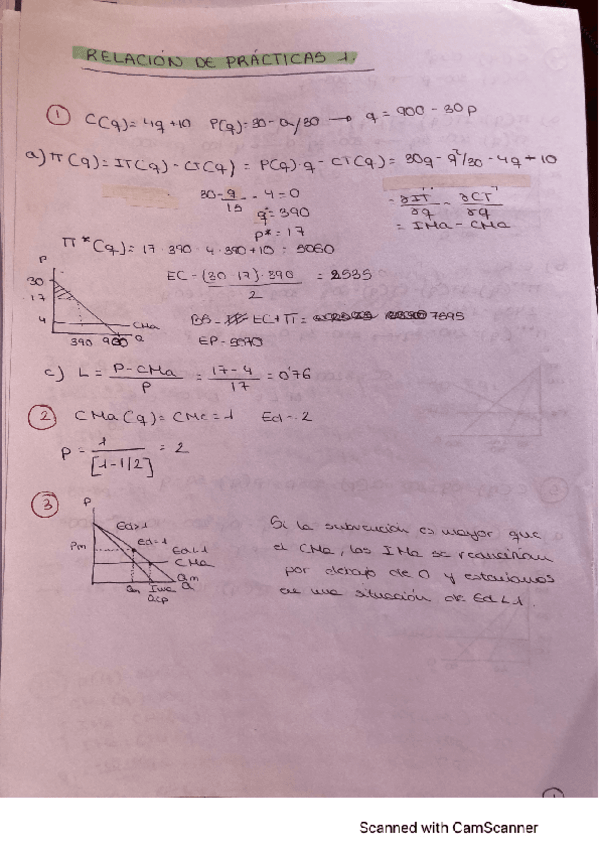 RELACIÓN DE PRÁCTICAS 1.
① C(q)=4q+10 P(q)=30-Q/30 → q = 900-30p
a) π(q)=IT(q)-CT(q)= P(q)·q-CT(q)= 30q-q²/30-4q+10
30-q/15 - 4=0
∂IT/∂q - ∂CT/∂q
q*=390
= IMa-CMa
p*=17
π*(q)= 17·390-4·390+10= 5060
P
EC-(30-17)·390/2 = 2535
30
17
4
CMa
390 900 Q
BS- EC+π= 7595
EP-5070
c) L= P-CMa/P = 17-4/17 = 0'76
② CMa(q)=CMe=1 Ed=-2
P= 1/[1-1/2] = 2
③
P
Ed>1
Ed=1
Pm
Ed<1
CMa
Qm
Qm IMa Q
Qcp
Si la subvención es mayor que
el CMa, los IMa se
por debajo de 0 y estaríamos
en una situación de Ed<1.
Scanned with CamScanner